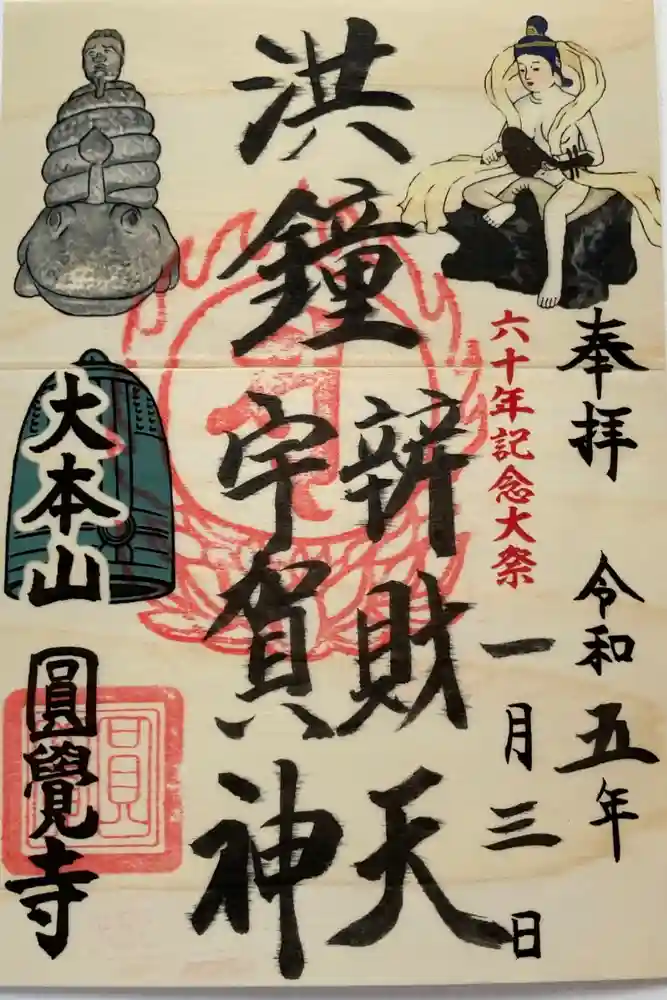 奉拝 令和五年
六十年記念大祭
一月三日
洪鐘
辨財天
宇賀神
大本山
圓覺寺